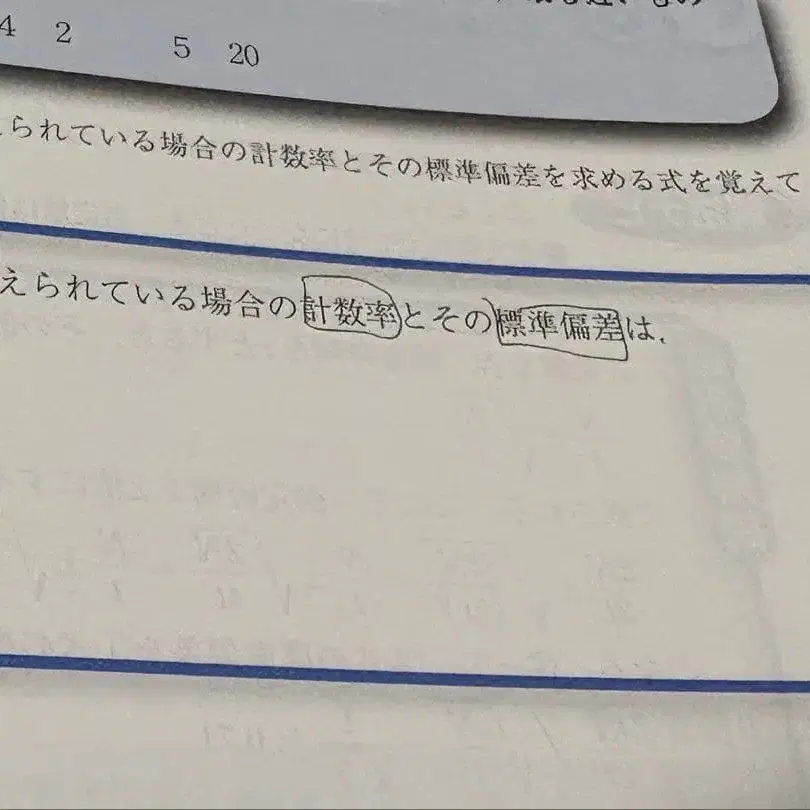 4 2 5 20
られている場合の計数率とその標準偏差を求める式を覚えて
えられている場合の計数率とその標準偏差は,